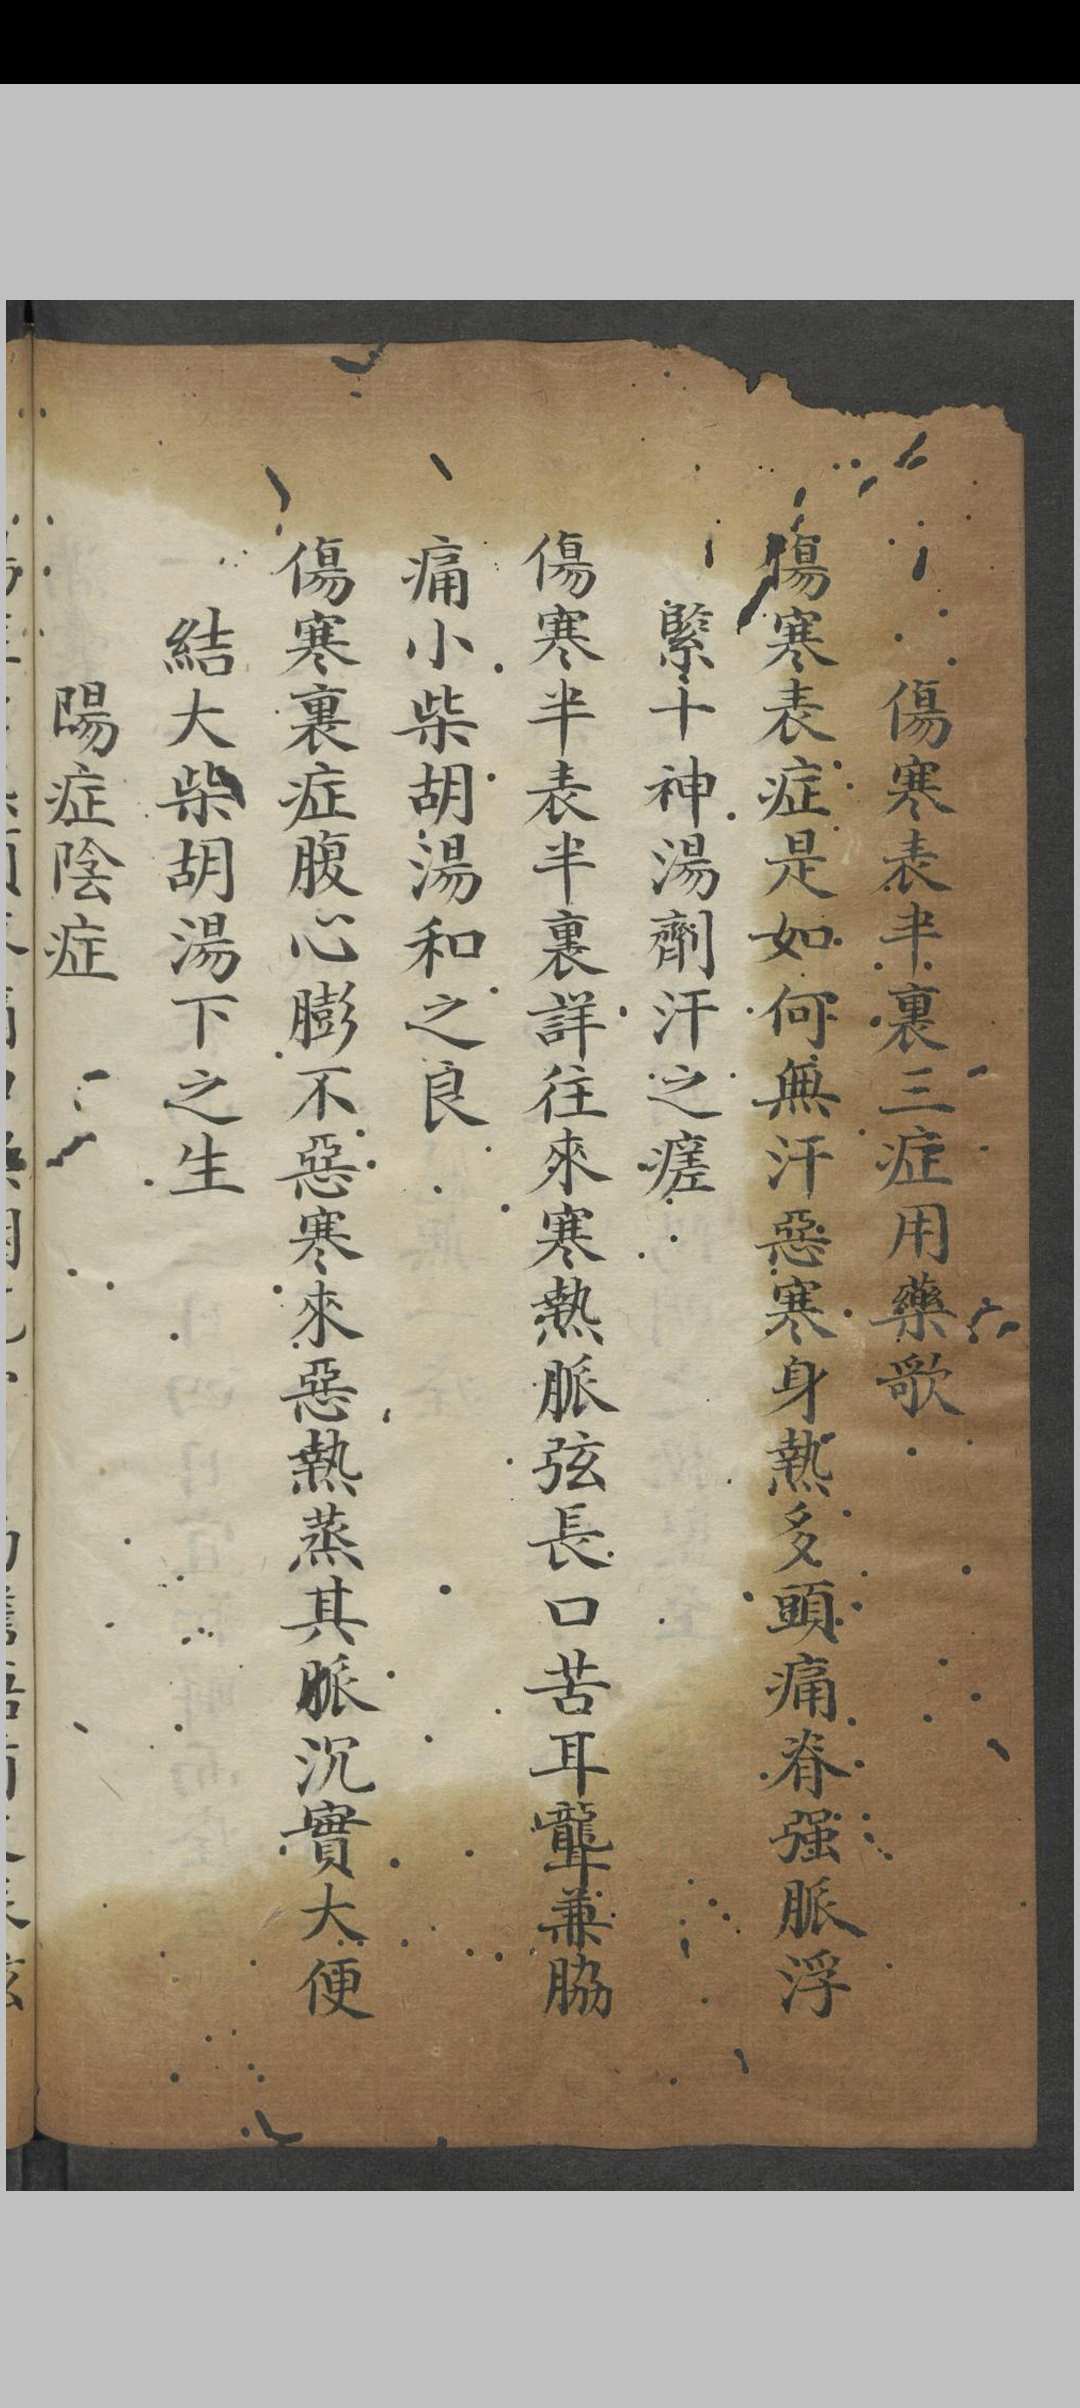 傷寒表半裏三症用藥歌
傷寒表症是如何無汗惡寒身熱多頭痛脊强脈浮
緊十神湯劑汗之瘥
傷寒半表半裏詳往來寒熱脈弦長口苦耳聾兼脇
痛小柴胡湯和之良
傷寒裏症腹心膨不惡寒來惡熱蒸其脈沉實大便
結大柴胡湯下之生
陽症陰症